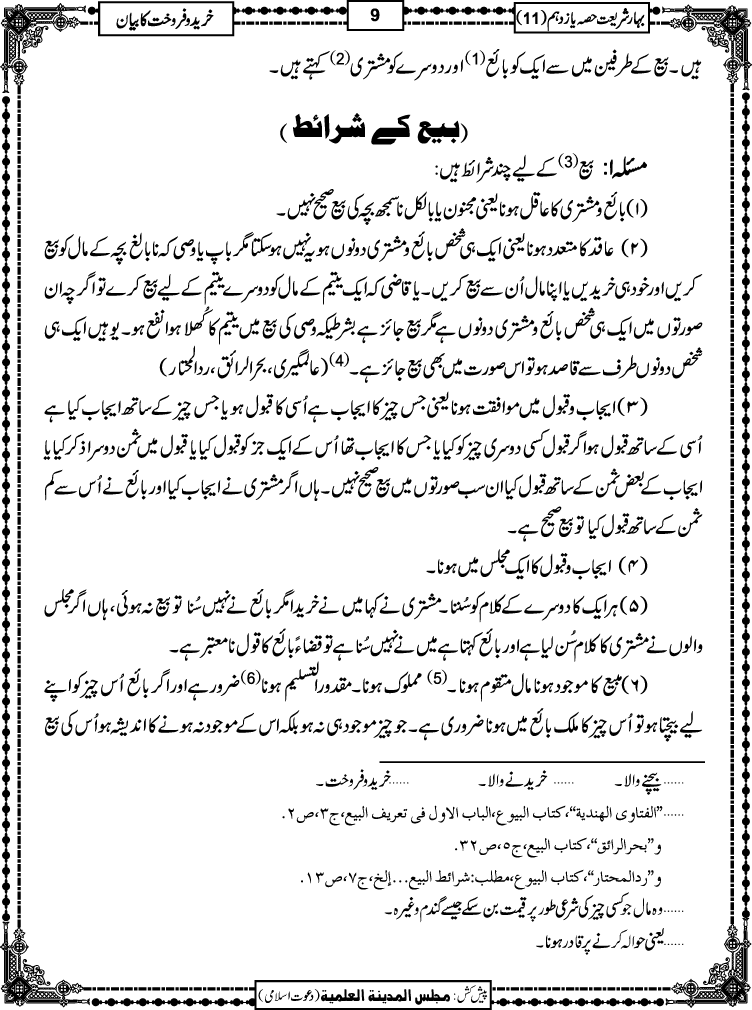 بہارِ شریعت حصہ یازدہم (11)
9
خرید و فروخت کا بیان
ہیں۔ بیع کے طرفین میں سے ایک کو بائع(1) اور دوسرے کو مشتری(2) کہتے ہیں۔
(بیع کے شرائط)
مسئلہ ۱: بیع(3) کے لیے چند شرائط ہیں:
(۱) بائع و مشتری کا عاقل ہونا یعنی مجنون یا بالکل ناسمجھ بچہ کی بیع صحیح نہیں۔
(۲) عاقد کا متعدد ہونا یعنی ایک ہی شخص بائع و مشتری دونوں ہو یہ نہیں ہوسکتا مگر باپ یا وصی کہ نابالغ بچہ کے مال کو بیع
کریں اور خود ہی خریدیں یا اپنا مال اُن سے بیع کریں۔ یا قاضی کہ ایک یتیم کے مال کو دوسرے یتیم کے لیے بیع کرے تو اگرچہ ان
صورتوں میں ایک ہی شخص بائع و مشتری دونوں ہے مگر بیع جائز ہے بشرطیکہ وصی کی بیع میں یتیم کا کُھلا ہوا نفع ہو۔ یوہیں ایک ہی
شخص دونوں طرف سے قاصد ہو تو اس صورت میں بھی بیع جائز ہے۔(4) (عالمگیری، بحرالرائق، ردالمحتار)
(۳) ایجاب و قبول میں موافقت ہونا یعنی جس چیز کا ایجاب ہے اُسی کا قبول ہو یا جس چیز کے ساتھ ایجاب کیا ہے
اُسی کے ساتھ قبول ہو اگر قبول کسی دوسری چیز کو کیا یا جس کا ایجاب تھا اُس کے ایک جز کو قبول کیا یا قبول میں ثمن دوسرا ذکر کیا یا
ایجاب کے بعض ثمن کے ساتھ قبول کیا ان سب صورتوں میں بیع صحیح نہیں۔ ہاں اگر مشتری نے ایجاب کیا اور بائع نے اُس سے کم
ثمن کے ساتھ قبول کیا تو بیع صحیح ہے۔
(۴) ایجاب و قبول کا ایک مجلس میں ہونا۔
(۵) ہر ایک کا دوسرے کے کلام کو سُننا۔ مشتری نے کہا میں نے خریدا مگر بائع نے نہیں سُنا تو بیع نہ ہوئی، ہاں اگر مجلس
والوں نے مشتری کا کلام سُن لیا ہے اور بائع کہتا ہے میں نے نہیں سُنا ہے تو قضاءً بائع کا قول نامعتبر ہے۔
(۶) مبیع کا موجود ہونا مال متقوم ہونا۔(5) مملوک ہونا۔ مقدور التسلیم ہونا(6) ضرور ہے اور اگر بائع اُس چیز کو اپنے
لیے بیچتا ہو تو اُس چیز کا ملک بائع میں ہونا ضروری ہے۔ جو چیز موجود ہی نہ ہو بلکہ اس کے موجود نہ ہونے کا اندیشہ ہو اُس کی بیع
......بیچنے والا۔ ......خریدنے والا۔ ......خرید و فروخت۔
......"الفتاوی الھندیة"، کتاب البیوع، الباب الاول فی تعریف البیع، ج۳، ص۲.
و"بحرالرائق"، کتاب البیع، ج۵، ص۳۲.
و"ردالمحتار"، کتاب البیوع، مطلب: شرائط البیع...إلخ، ج۷، ص۱۳.
......وہ مال جو کسی چیز کی شرعی طور پر قیمت بن سکے جیسے گندم وغیرہ۔
......یعنی حوالہ کرنے پر قادر ہونا۔
پیش کش: مجلس المدینة العلمیة (دعوت اسلامی)